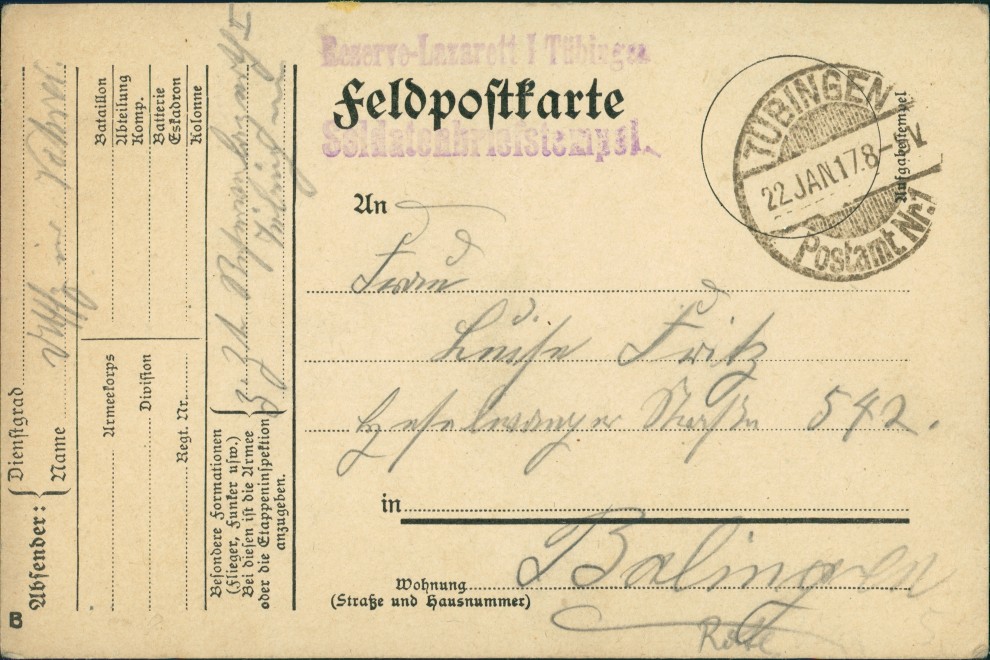 Reserve-Lazarett I Tübingen
Feldpostkarte
Soldatenbriefstempel.
TÜBINGEN
22.JAN.17.8-9V
Postamt Nr.1
Aufgabestempel
An
Frau
Luise Fritz
Heselwanger Straße 542.
in
Balingen
Wohnung
(Straße und Hausnummer)
Rotte
Absender:
Dienstgrad
Name
Bataillon
Abteilung
Komp.
Batterie
Eskadron
Kolonne
Armeekorps
Division
Regt. Nr.
Besondere Formationen
(Flieger, Funker usw.)
Bei diesen ist die Armee
oder die Etappeninspektion
anzugeben.
B